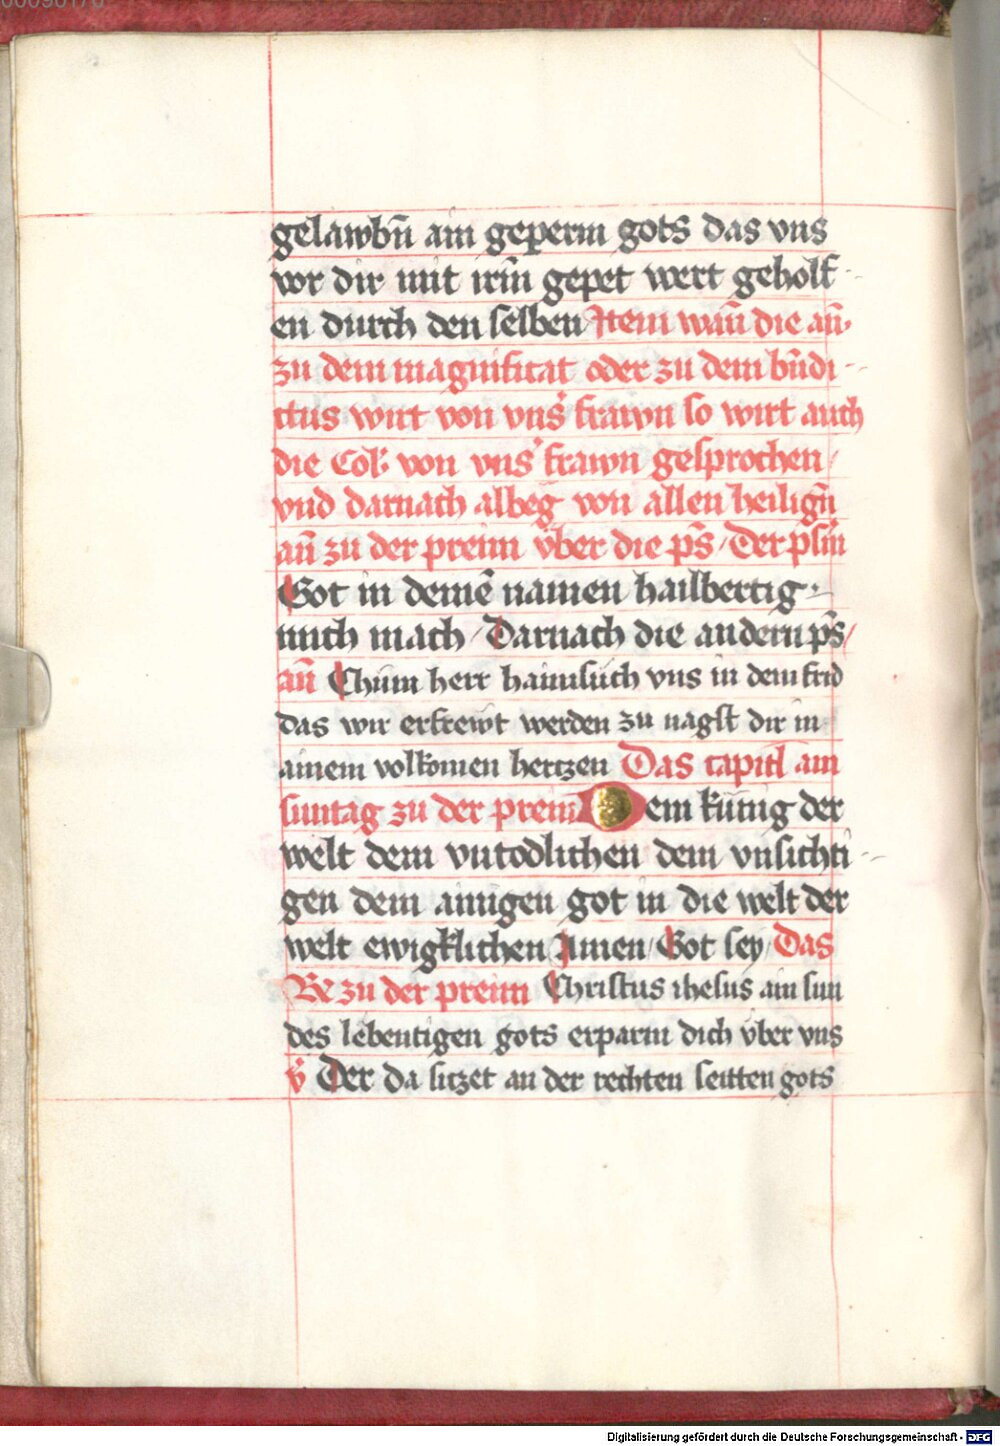 gelawbn̄ ain geperin gots das vns
vor dir mit irm̄ gepet wert geholf-
en durch den selben Item wan̄ die an̄.
zu dem magnificat oder zu dem bn̄di-
ctus wirt von vns̓ frawn so wirt auch
die Coll: von vns̓ frawn gesprochen/
vnd darnach albeg von allen heilign̄
an̄ zu der preim v̈ber die ps̄/Der pslm̄
Got in deinē namen hailbertig-
mich mach/Darnach die andern ps̄/
an̄ Chum herr haimsuch vns in dem frid
das wir erfrewt werden zu nagst dir in
ainem volkomen hertzen Das capitl am
suntag zu der preim Dem kunig der
welt dem vntodlichen dem vnsichti-
gen dem ainigen got in die welt der
welt ewigklichen Amen/Got sey/Das
Re zu der preim Christus ihesus ain sun
des lebentigen gots erparm dich v̈ber vns
v̄ Der da sitzet an der rechten seitten gots
Digitalisierung gefördert durch die Deutsche Forschungsgemeinschaft - DFG